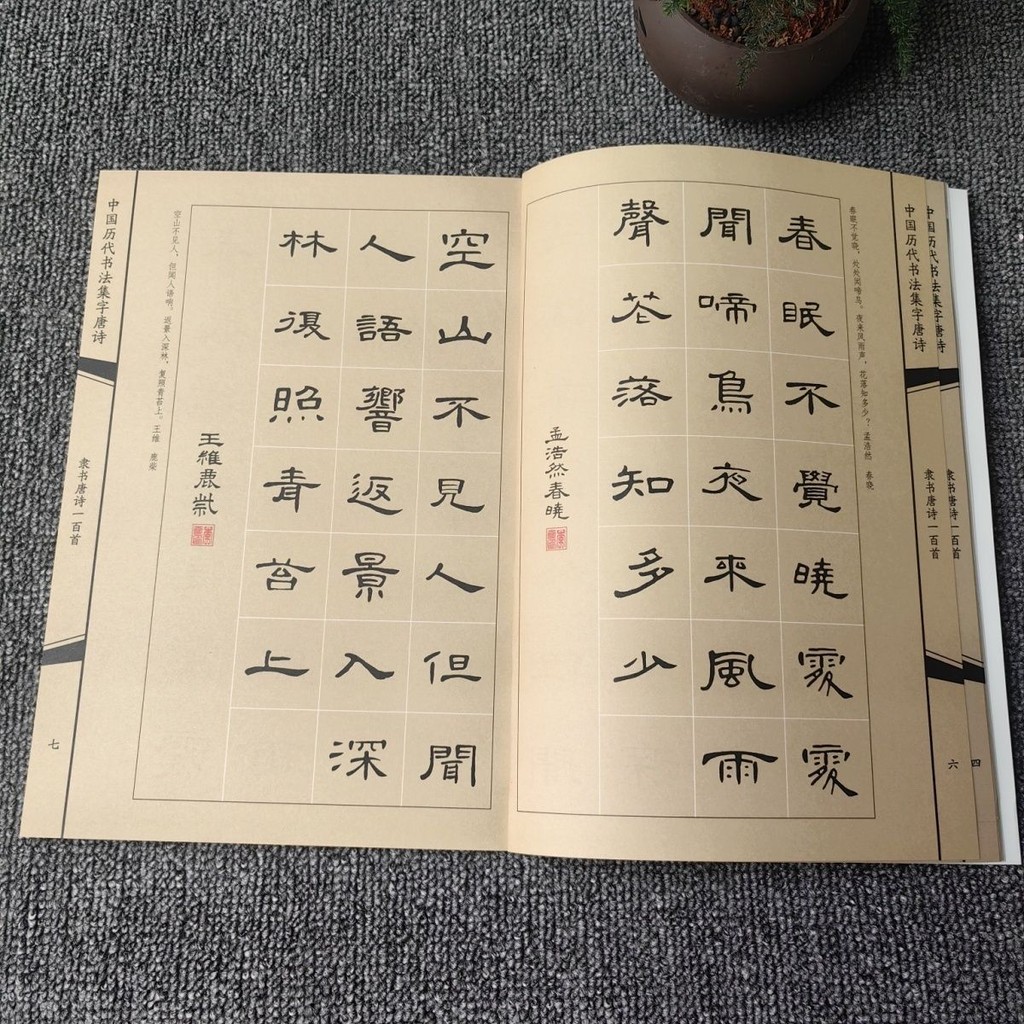 中国历代书法集字唐诗
隶书唐诗一百首
四
中国历代书法集字唐诗
隶书唐诗一百首
六
春眠不觉晓，处处闻啼鸟。夜来风雨声，花落知多少？ 孟浩然 春晓
春眠不覺曉處處
聞啼鳥夜來風雨
聲花落知多少
孟浩然春曉
空山不見人但聞
人語響返景入深
林復照青苔上
王維鹿柴
空山不见人，但闻人语响。返景入深林，复照青苔上。王维 鹿柴
中国历代书法集字唐诗
隶书唐诗一百首
七